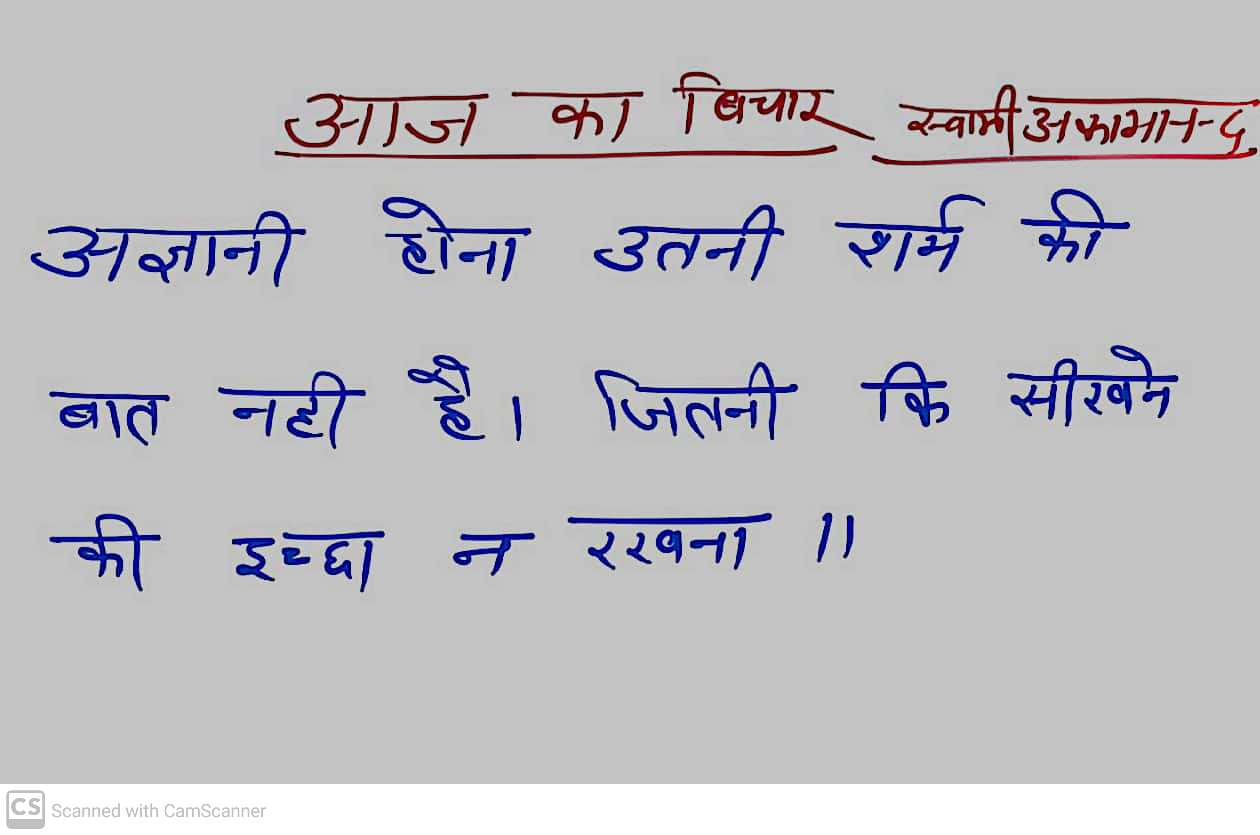 आज का बिचार स्वामी अकामानन्द
अज्ञानी होना उतनी शर्म की
बात नही है। जितनी कि सीखने
की इच्छा न रखना ॥
CS Scanned with CamScanner